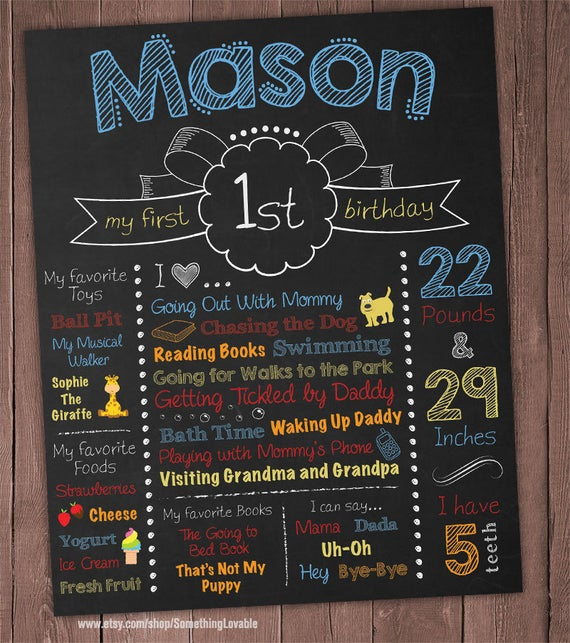 Mason
my first 1st birthday
My favorite
Toys
Ball Pit
My Musical
Walker
Sophie
The
Giraffe
My favorite
Foods
Strawberries
Cheese
Yogurt
Ice Cream
Fresh Fruit
I ...
Going Out With Mommy
Chasing the Dog
Reading Books Swimming
Going for Walks to the Park
Getting Tickled by Daddy
Bath Time Waking Up Daddy
Playing with Mommy's Phone
Visiting Grandma and Grandpa
My favorite Books
The Going to
Bed Book
That's Not My
Puppy
I can say...
Mama Dada
Uh-Oh
Hey Bye-Bye
22
Pounds
&
29
Inches
I have
5 teeth
www.etsy.com/shop/SomethingLovable